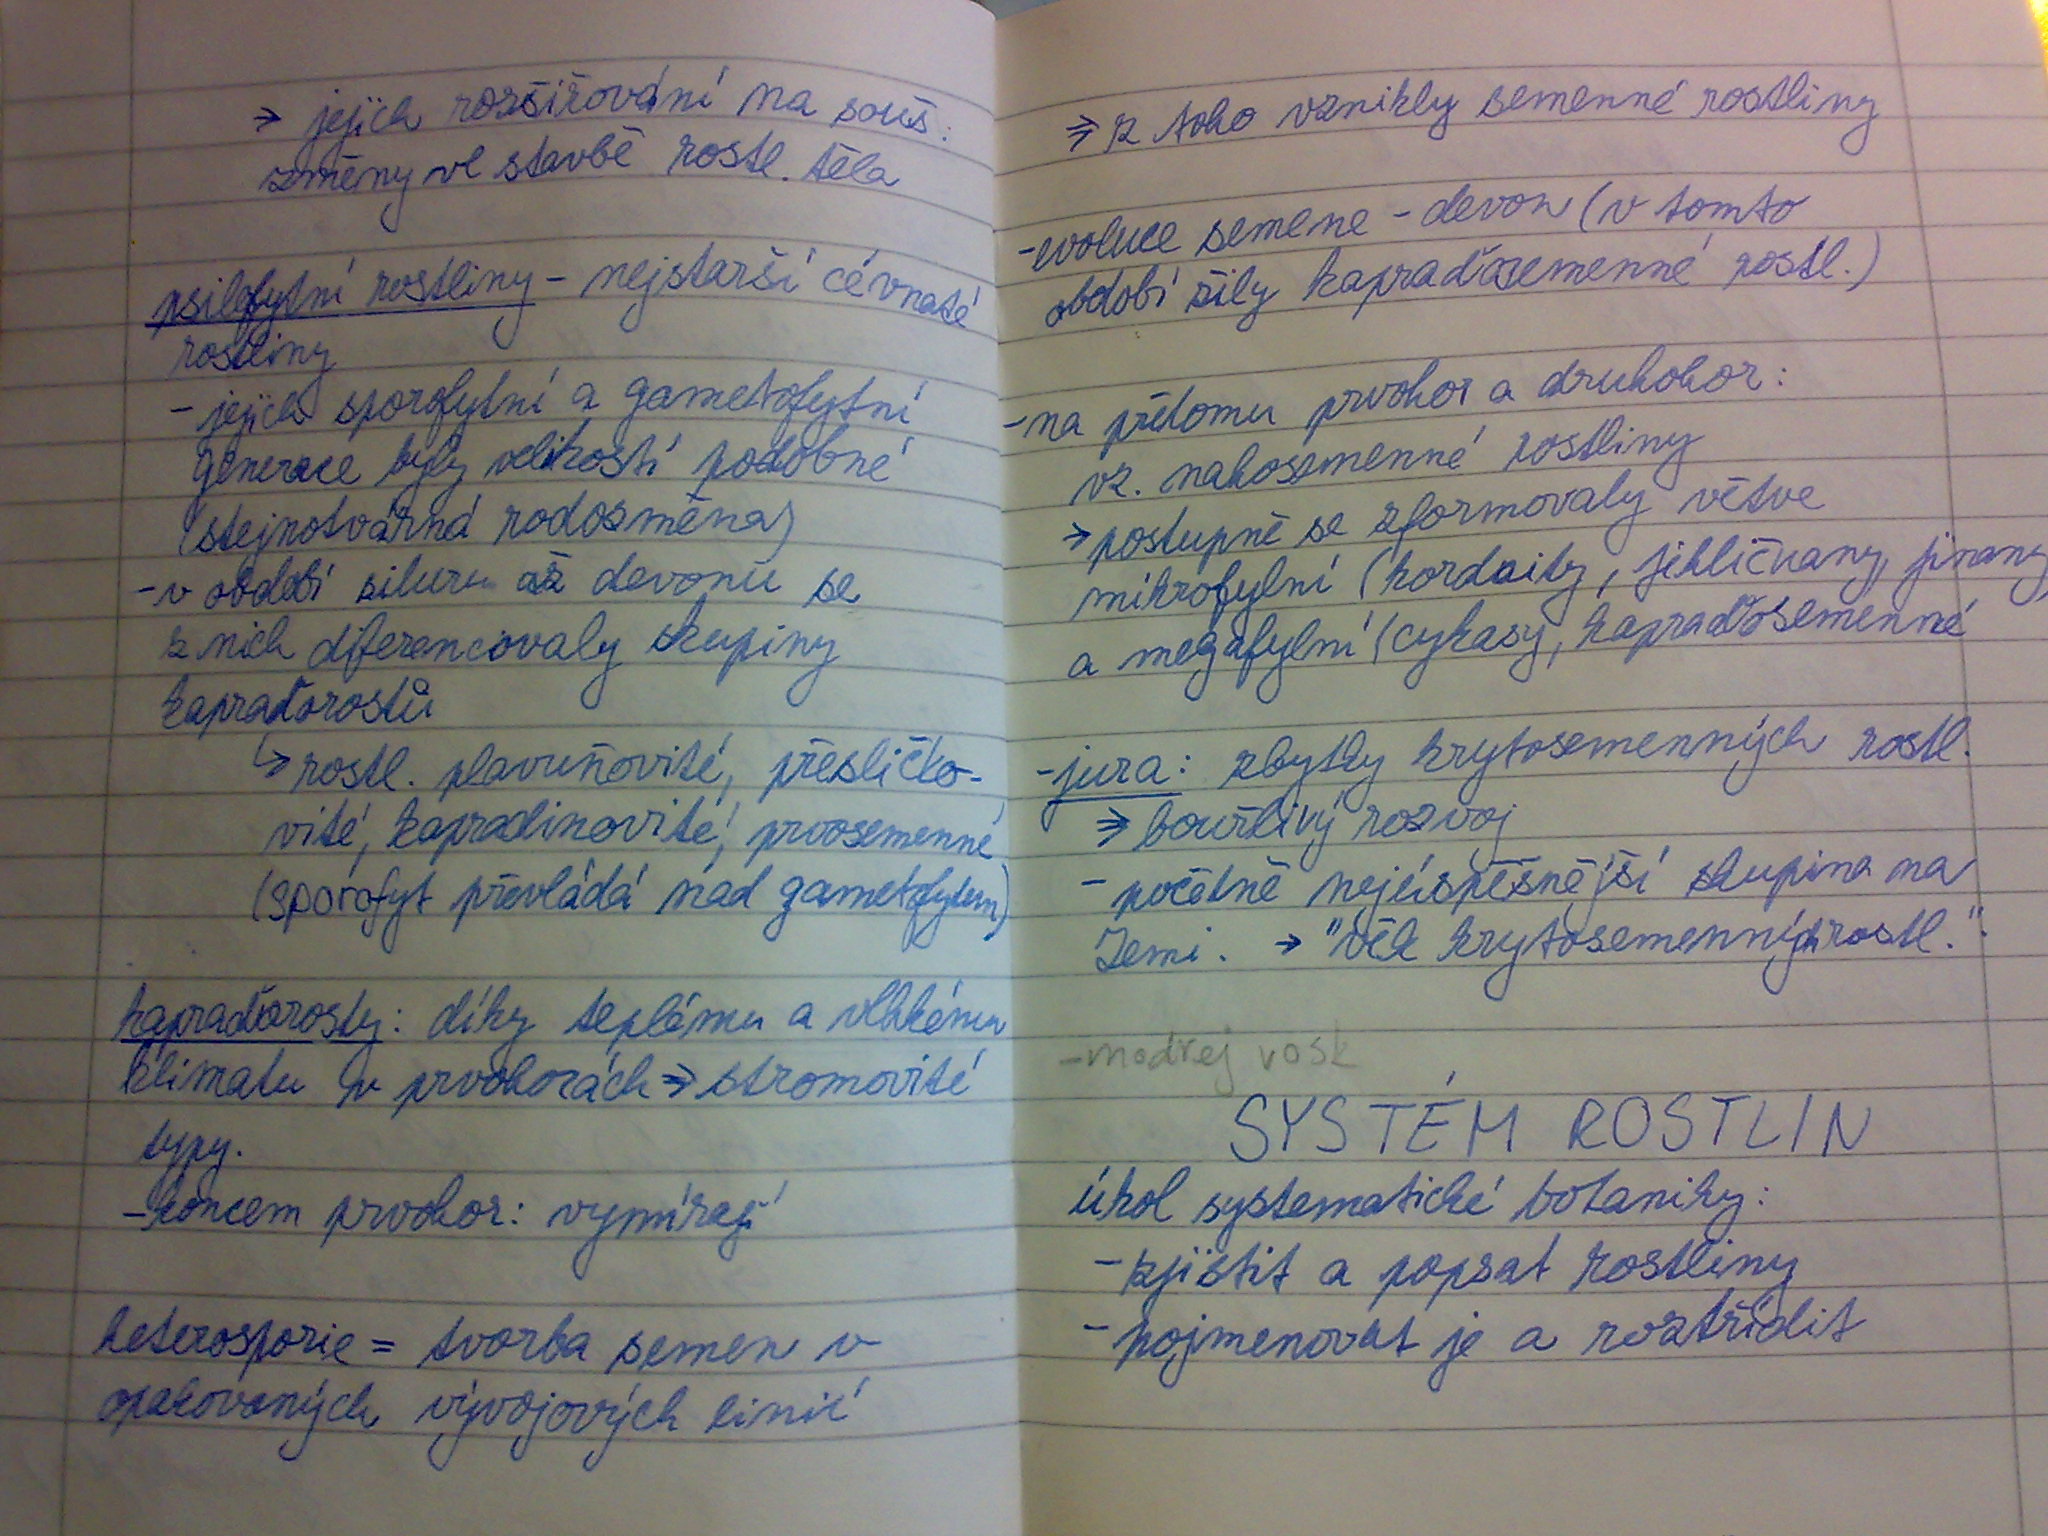 → jejich rozšiřování na souš:
změny ve stavbě rostl. těla
psilofytní rostliny - nejstarší cévnaté
rostliny
- jejich sporofytní a gametofytní
generace byly velikostí podobné
(stejnotvárná rodozměna)
- v období siluru až devonu se
z nich diferencovaly skupiny
kapraďorostů
↳ rostl. plavuňovité, přesličko-
vité, kapradinovité, prvosemenné
(sporofyt převládá nad gametofytem)
kapraďorosty: díky teplému a vlhkému
klimatu v prvohorách ⇒ stromovité
typy.
- koncem prvohor: vymírají
heterosporie = tvorba semen v
opakovaných vývojových linií
⇒ z toho vznikly semenné rostliny
- evoluce semene - devon (v tomto
období žily kapraďosemenné rostl.)
- na přelomu prvohor a druhohor:
vz. nahosemenné rostliny
→ postupně se zformovaly větve
mikrofylní (kordaity, jehličnany, jinany)
a megafylní (cykasy, kapraďosemenné
- jura: zbytky krytosemenných rostl.
⇒ bouřlivý rozvoj
- početně nejúspěšnější skupina na
Zemi. → "věk krytosemenných rostl."
- modřej vosk
SYSTÉM ROSTLIN
úkol systematické botaniky:
- zjistit a popsat rostliny
- pojmenovat je a roztřídit